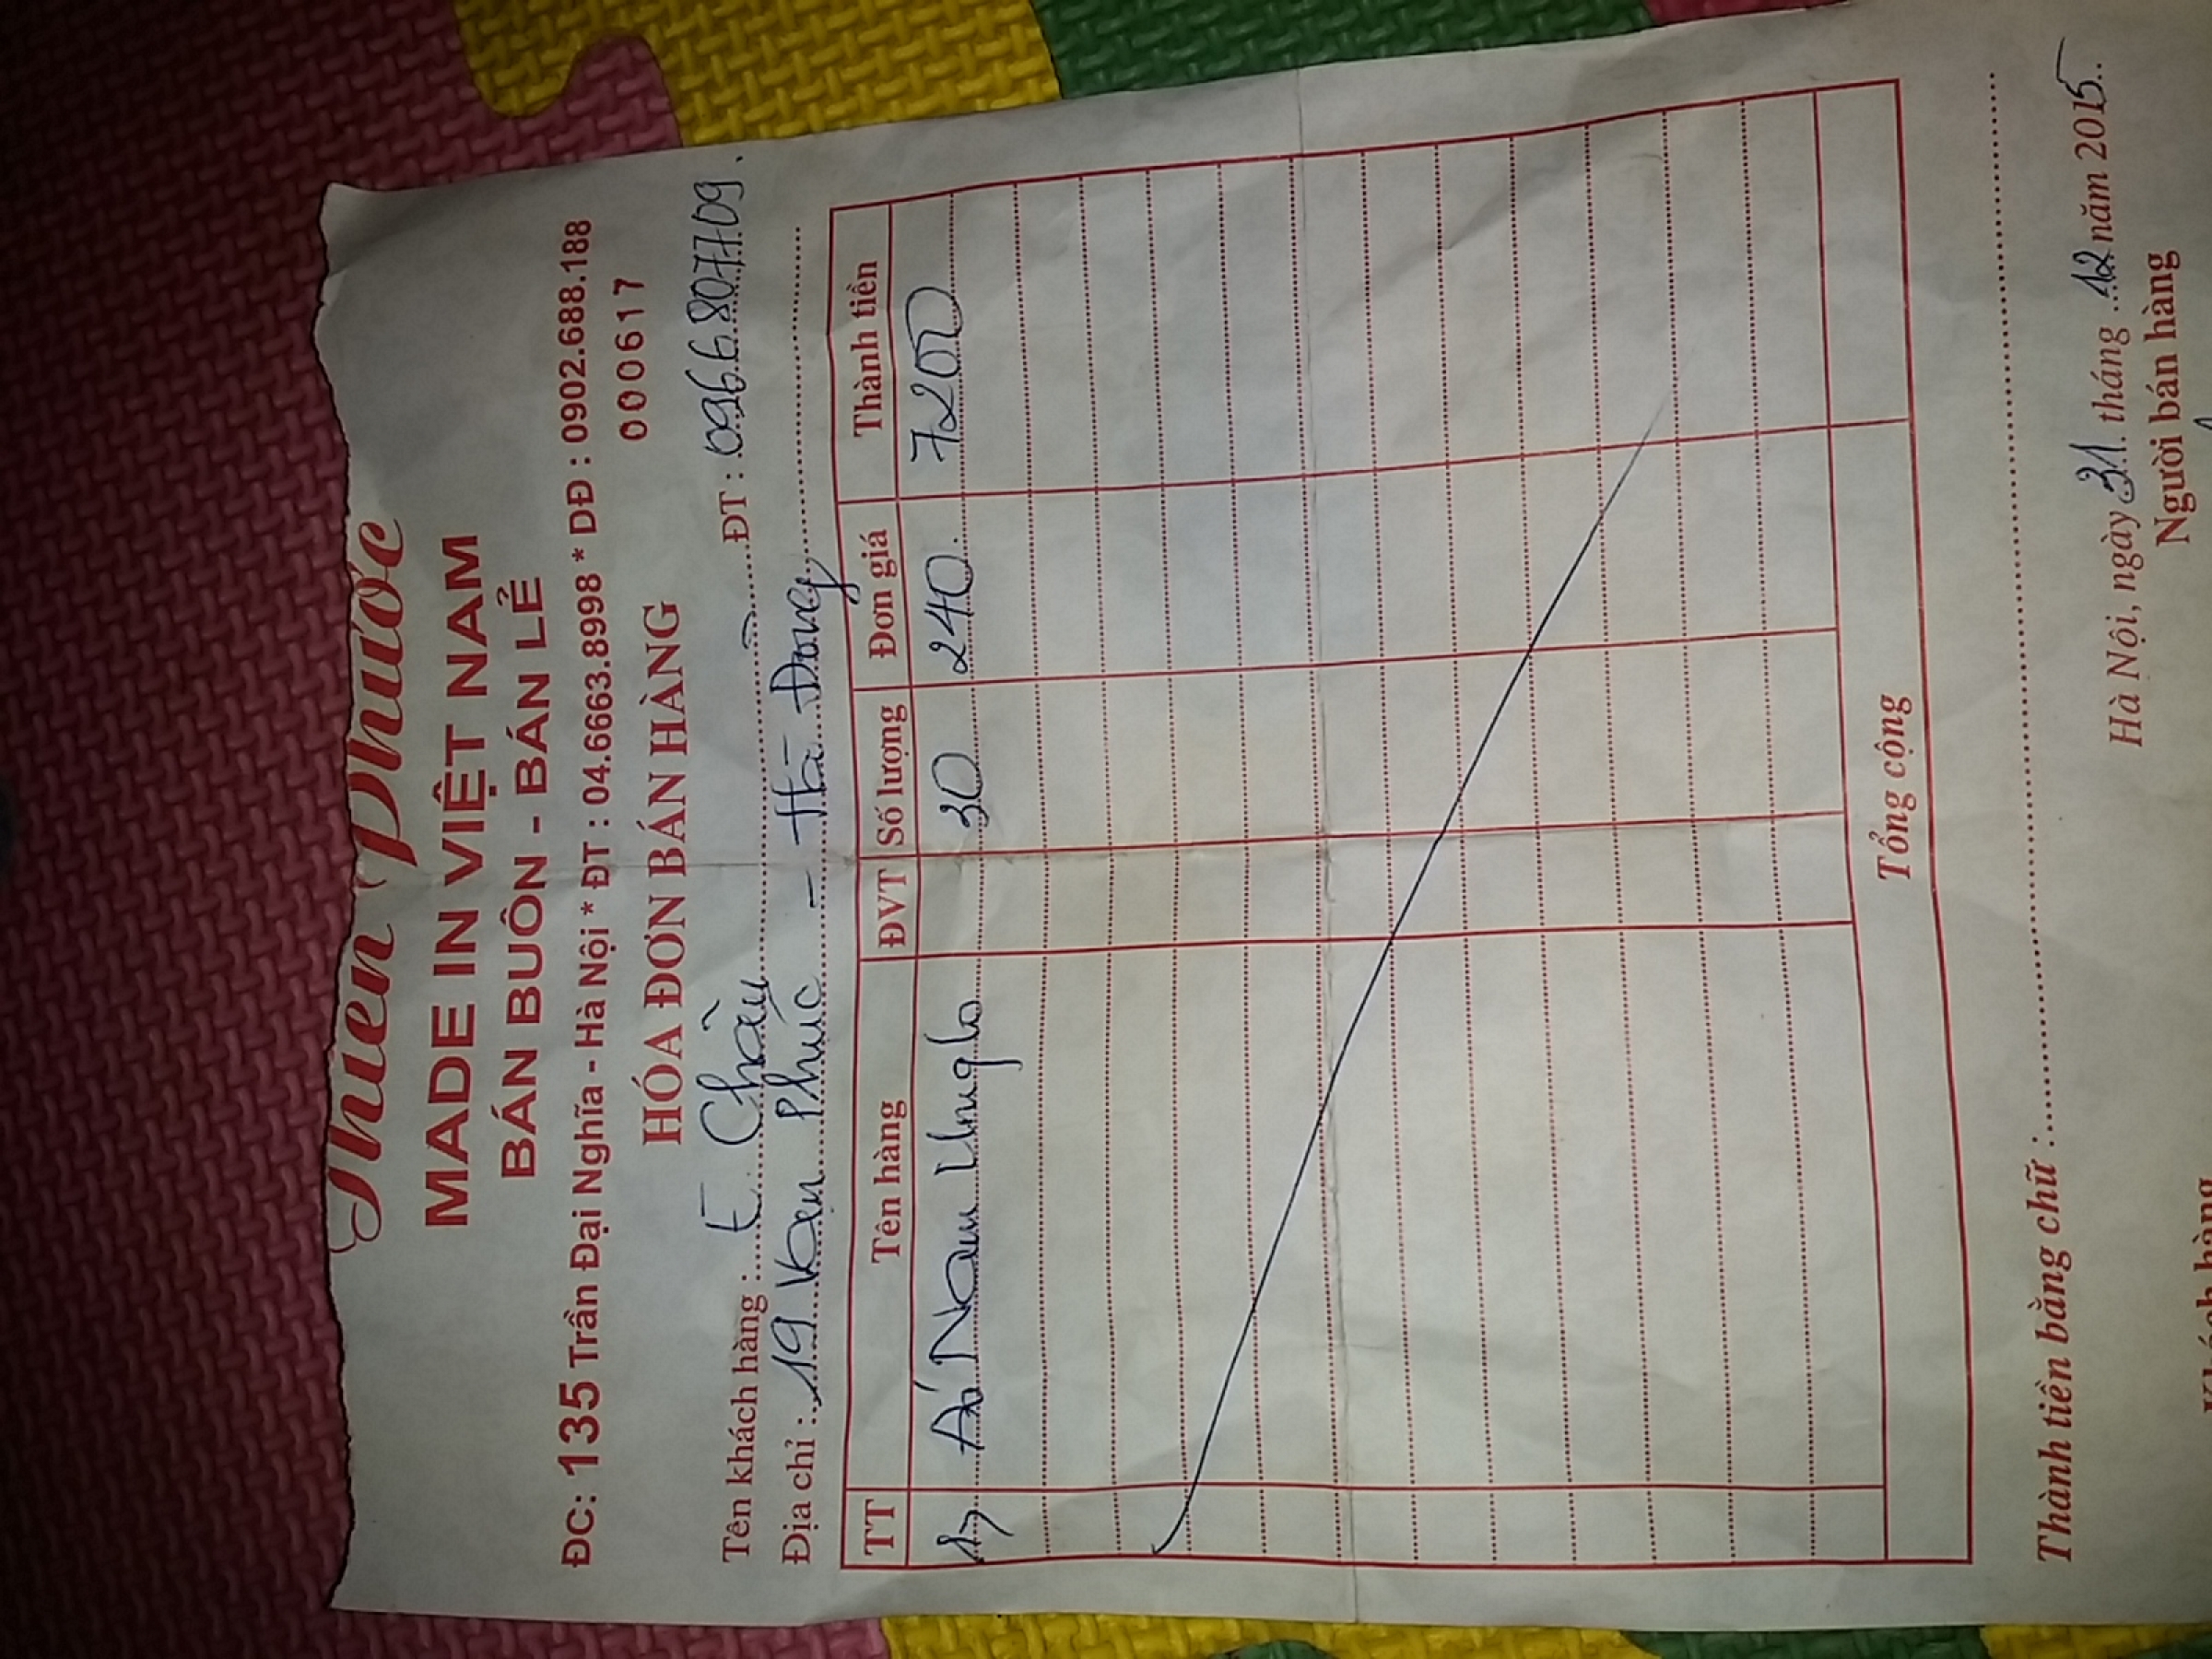 Thiên Phước
MADE IN VIỆT NAM
BÁN BUÔN - BÁN LẺ
ĐC: 135 Trần Đại Nghĩa - Hà Nội * ĐT : 04.6663.8998 * DĐ : 0902.688.188
HÓA ĐƠN BÁN HÀNG 000617
Tên khách hàng : E Chầu ĐT : 0966807709
Địa chỉ : 19 Vạn Phúc - Hà Đong
TT Tên hàng ĐVT Số lượng Đơn giá Thành tiền
1, Aó Nam 30 240 7200
Tổng cộng
Thành tiền bằng chữ :
Hà Nội, ngày 31 tháng 12 năm 2015
Khách hàng Người bán hàng